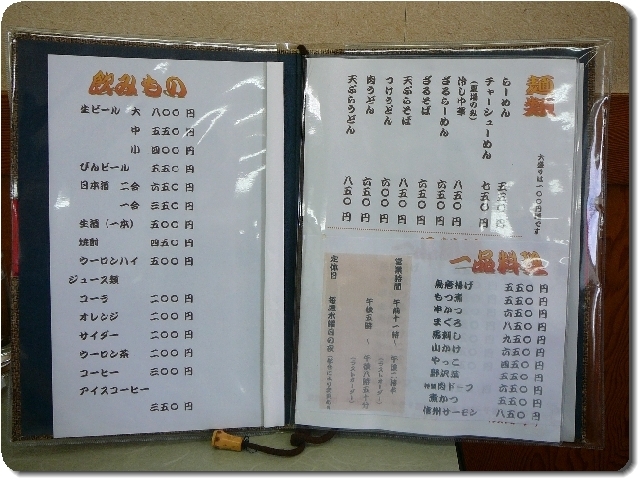 飲みもの
生ビール 大 八〇〇 円
中 五五〇 円
小 四〇〇 円
びんビール 五五〇 円
日本酒 二合 六五〇 円
一合 三五〇 円
生酒（一本） 五五〇 円
焼酎 四五〇 円
ウーロンハイ 五五〇 円
ジュース類
コーラ 二〇〇 円
オレンジ 二〇〇 円
サイダー 二〇〇 円
ウーロン茶 二〇〇 円
コーヒー 三〇〇 円
アイスコーヒー
三五〇 円
麺類
大盛りは一〇〇円増です
らーめん 五五〇 円
チャーシューめん 七五〇 円
冷し中華 八五〇 円
（夏場のみ）
ざるらーめん 六五〇 円
ざるそば 六五〇 円
天ぷらそば 八五〇 円
つけうどん 六〇〇 円
肉うどん 六〇〇 円
天ぷらうどん 八五〇 円
一品料理
鳥唐揚げ 五五〇 円
もつ煮 五五〇 円
串かつ 六五〇 円
まぐろ 八五〇 円
馬刺し 九五〇 円
山かけ 六五〇 円
やっこ 四五〇 円
野沢菜 三五〇 円
特製肉ドーフ 五五〇 円
煮かつ 五五〇 円
信州サーモン 八五〇 円
営業時間 午前十一時～
午後五時～
定休日 毎週水曜日の夜